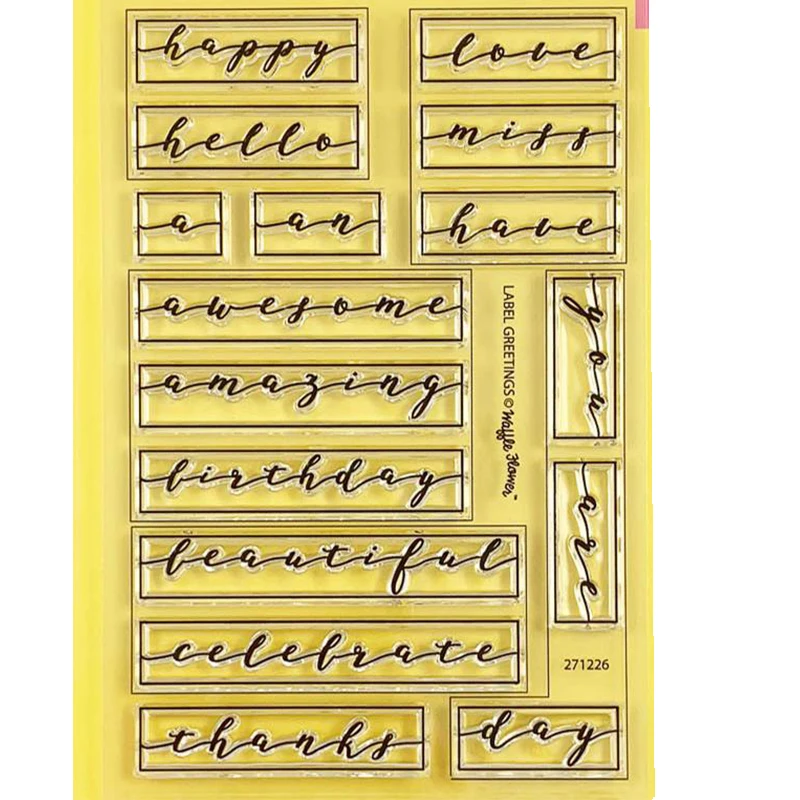 happy
love
hello
miss
a
an
have
awesome
amazing
birthday
LABEL GREETINGS © Waffle Flower™
you
are
beautiful
celebrate
271226
thanks
day